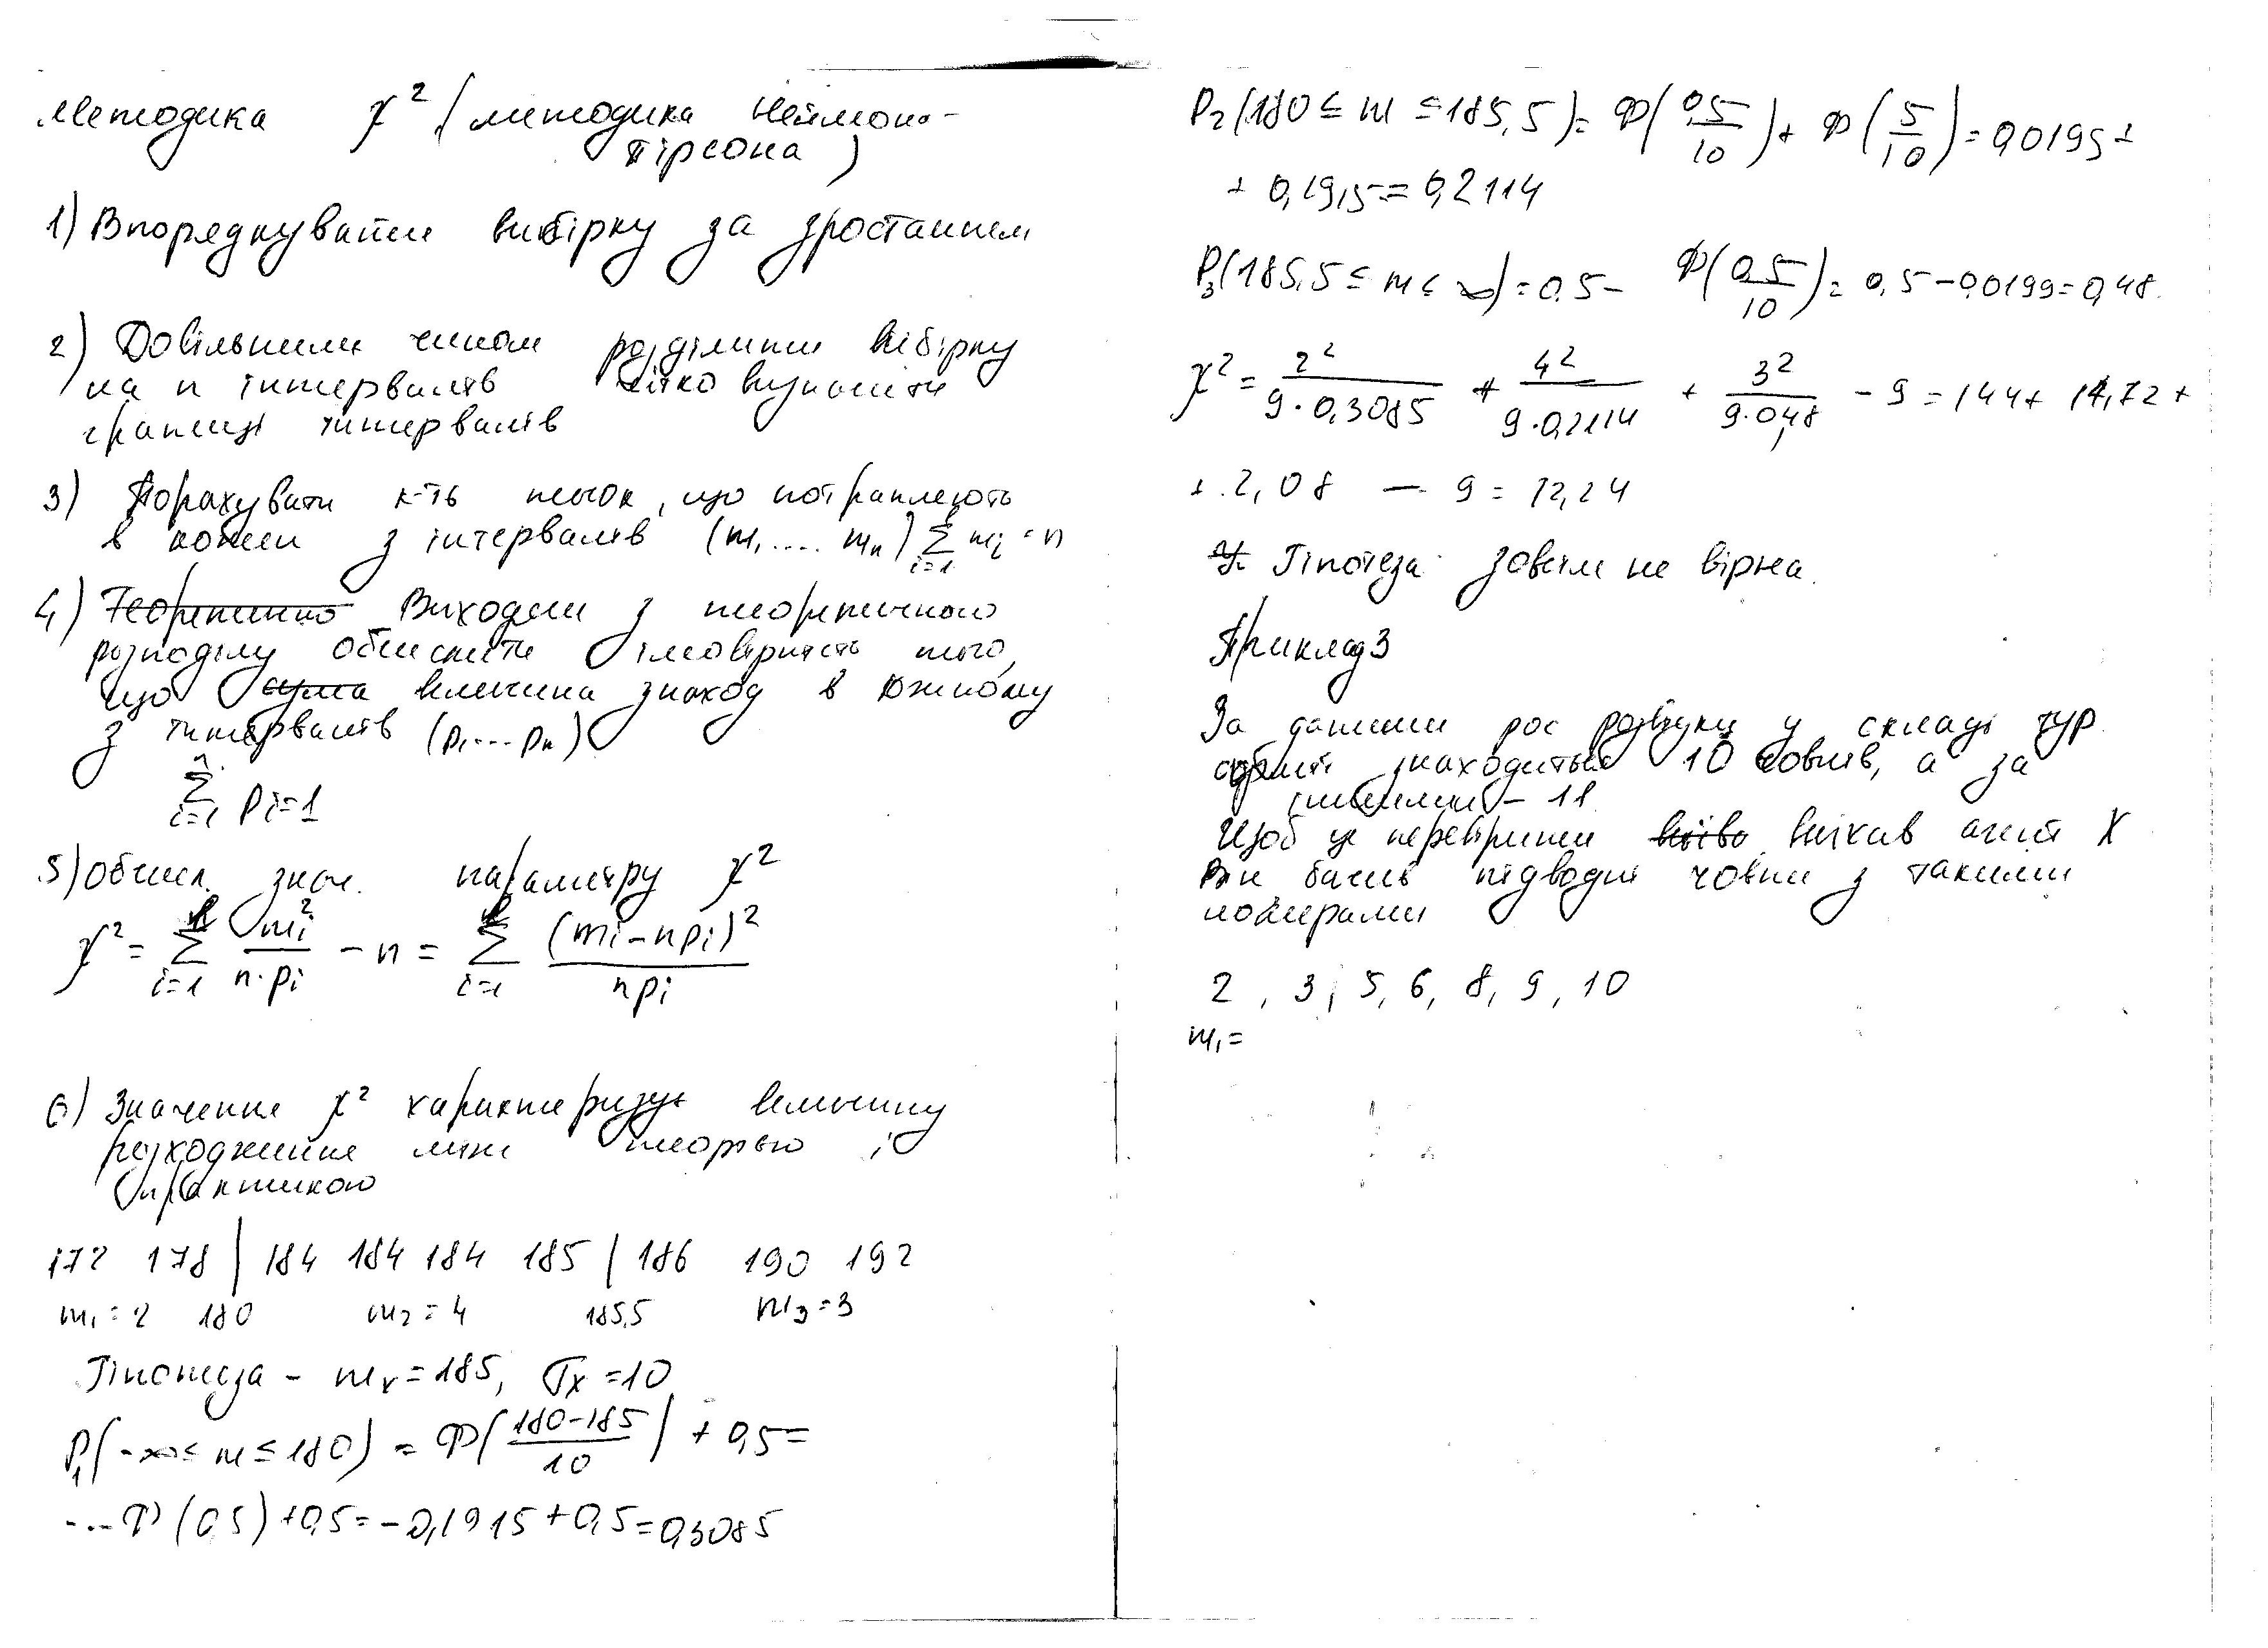 Методика χ² (методика Неймона-
Пірсона)
1) Впорядкувати вибірку за зростанням
2) Довільним чином розділити вибірку
на n інтервалів чітко визначити
границі інтервалів
3) Порахувати к-ть точок, що потрапляють
в кожен з інтервалів (m₁.... mₙ) Σ i=1 mᵢ = n
4) Теоретично Виходячи з теоретичного
розподілу обчислити імовірність того,
що сума величина знаход в кожному
з інтервалів (p₁...pₙ)
n Σ i=1 Pi=1
5) Обчисл. знач. параметру χ²
χ² = Σ i=1 mi²/(n·pi) - n = Σ i=1 (mi-npi)²/(npi)
6) Значення χ² характеризує величину
розходження між теорією і
практикою
172 178 | 184 184 184 185 | 186 190 192
m₁=2 180 m₂=4 185,5 m₃=3
Гіпотеза - mx=185, σx=10
P₁(-∞≤m≤180) = Ф((180-185)/10) + 0,5=
... Ф(0,5)+0,5=-0,1915+0,5=0,3085
P₂(180≤m≤185,5)= Ф(0,5/10)+ Ф(5/10)=0,0199+
+ 0,1915=0,2114
P₃(185,5≤m≤∞)=0,5- Ф(0,5/10)= 0,5-0,0199=0,48.
χ² = 2²/(9·0,3085) + 4²/(9·0,2114) + 3²/(9·0,48) - 9 = 144+ 14,72+
+ 2,08 - 9 = 12,24
Гіпотеза зовсім не вірна.
Приклад 3
За даними рос розвідки у складі тур
знаходиться 10 човнів, а за
іншими - 11
Щоб це перевірити виїхав агент X
Він бачив підводні човни з такими
номерами
2, 3, 5, 6, 8, 9, 10
m₁=